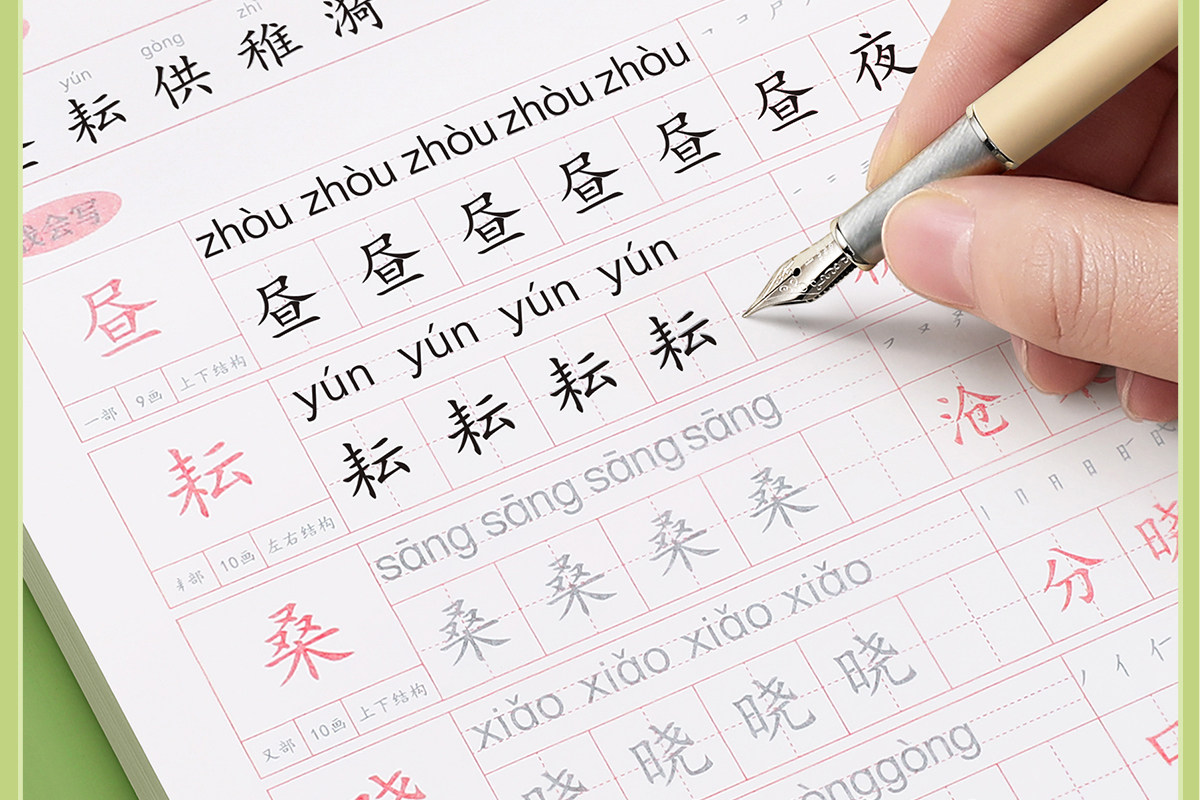 zhì
yún gòng
耘 供 稚 漪
我会写
zhòu zhòu zhòu zhòu zhòu
昼 昼 昼 昼 昼 昼 昼 夜
一部 9画 上下结构
yún yún yún yún
耘 耘 耘 耘 耘
10画 左右结构
sāng sāng sāng sāng
桑 桑 桑 桑 桑
沧
又部 10画 上下结构
xiǎo xiǎo xiǎo xiǎo
晓 晓 晓 晓
分 晓
gòng